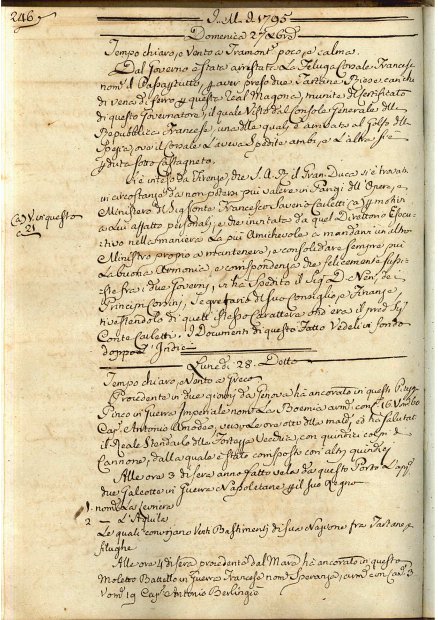 246
I. M. d. 1795
Domenica 27 8bre
Tempo chiaro, e Vento a Tramont.ª poco, e calma.
Dal Governo è stata arrestata la Feluga Corsale Francese
nom.ª il Capagtutto, p aver preso due Tartane Prove can chi
di Vena di ferro p questa Real Magona, munite di Certificato
di questo Governatore, il quale Visto dal Console Generale della
Repubblica Francese, una delle quali è arrivata al Golfo della
Spezia, ove il Corsale L'aveva Spedite ambi, e L'altra si è
p duta sotto Castagneto.
Si è inteso da Firenze, che S. A. R. il Gran Duca si è trovato
in circostanza da non potersi più valere in Parigi dell'Opera, e
Ministero del Sig. Conte Francesco Saverio Carletti p motivi
a Lui affatto personali, e che invitato da quel Direttorio Esecu
tivo nella maniera La più Amichevole a mandarvi un altro
Ministro proprio a mantenere, e consolidare sempre più
La buona Armonia, e corrispondenza che felicemente sussi
ste fra i due Governi, vi ha Spedito il Sig. D. Neri de
Principi Corsini, Segretario del suo Consiglio, e Finanze,
rivestendolo di quell' stesso Carattere che era il pred. Sig.
Conte Carletti. I Documenti di questo Fatto Vedeli in fondo
doppo L'Indice
Ca V. in questo
a 21
Lunedi 28. Detto
Tempo chiaro, e Vento a Greco
Procedente in due giorni da Genova ha ancorato in questo Porto
Pinco in Guerra Imperiale nom.ª La Boemia arm. con 16 Vom. 60
Cap. Antonio Amodeo, verso Le ore otto della matt.ª, ed ha salutat
il Reale Stendardo della Fortezza Vecchia, con quindici colpi di
Cannone, dalla quale è stato risposto con altri quindici
Alle ore 3 di sera anno fatto vela da questo Porto L'app.
due Galeotte in Guerra Napoletane p il suo Regno
1 nom. La Levriera
2 — L'Aquila
Le quali convojano Venti Bastimenti di sua Nazione fra Tartane, e
filughe
Alle ore 4 di sera procedente dal Mare ha ancorato in questo
Moletto Battello in Guerra Francese nom. Speranza, arm. con Can. 3
Vom. 19 Cap. Antonio Berlingie